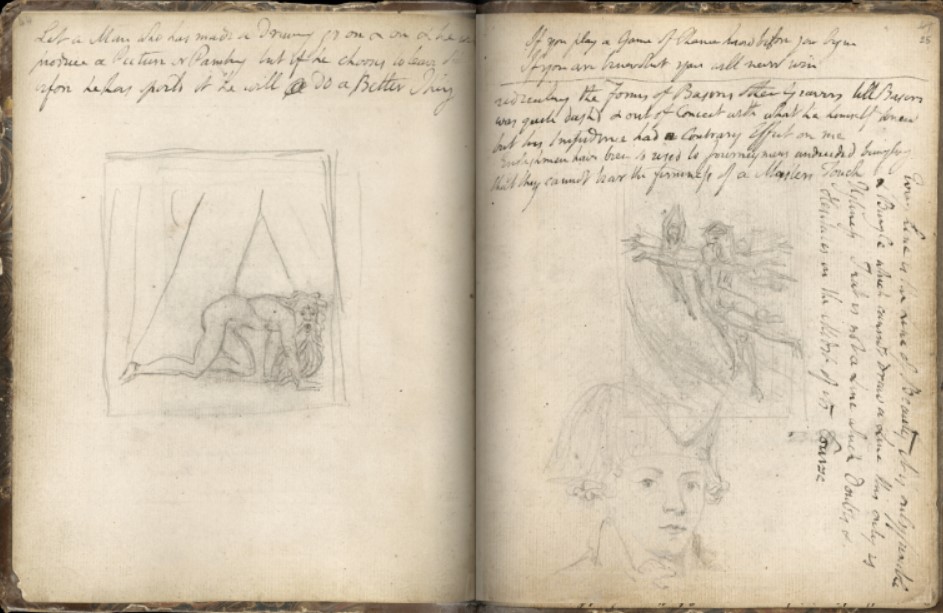 Let a Man who has made a Drawing go on & on & he
produce a Picture or Painting but if he chooses to leave
fore he has spoild it he will do a Better Thing
If you play a Game of Chance know before you begin
If you are benevolent you will never win
ridiculing the Forms of Basires other Gravers till Basire
was quite dashd & out of Conceit with what he himself
but his Impudence had a Contrary Effect on me
Englishmen have been so used to Journeymens undecided bungling
that they cannot bear the firmness of a Masters Touch
Every Line is the Line of Beauty it is only fumble
& Bungle which cannot Draw a Line this only is
Ugliness That is not a Line which Doubts &
Hesitates in the Midst of its Course